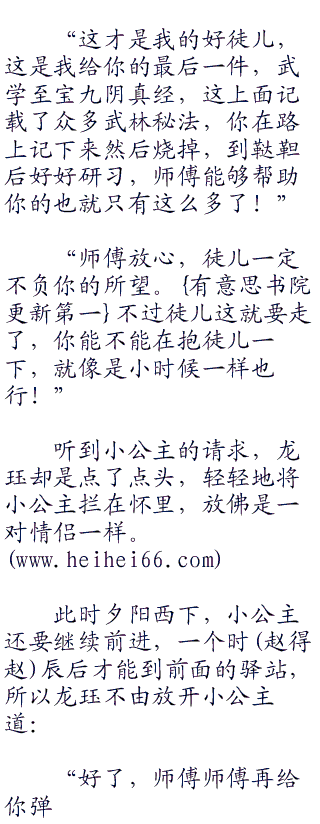 “这才是我的好徒儿，
这是我给你的最后一件，武
学至宝九阴真经，这上面记
载了众多武林秘法，你在路
上记下来然后烧掉，到鞑靼
后好好研习，师傅能够帮助
你的也就只有这么多了！”
“师傅放心，徒儿一定
不负你的所望。{有意思书院
更新第一}不过徒儿这就要走
了，你能不能在抱徒儿一
下，就像是小时候一样也
行！”
听到小公主的请求，龙
珏却是点了点头，轻轻地将
小公主拦在怀里，放佛是一
对情侣一样。
(www.heihei66.com)
此时夕阳西下，小公主
还要继续前进，一个时(赵得
赵)辰后才能到前面的驿站，
所以龙珏不由放开小公主
道：
“好了，师傅师傅再给
你弹